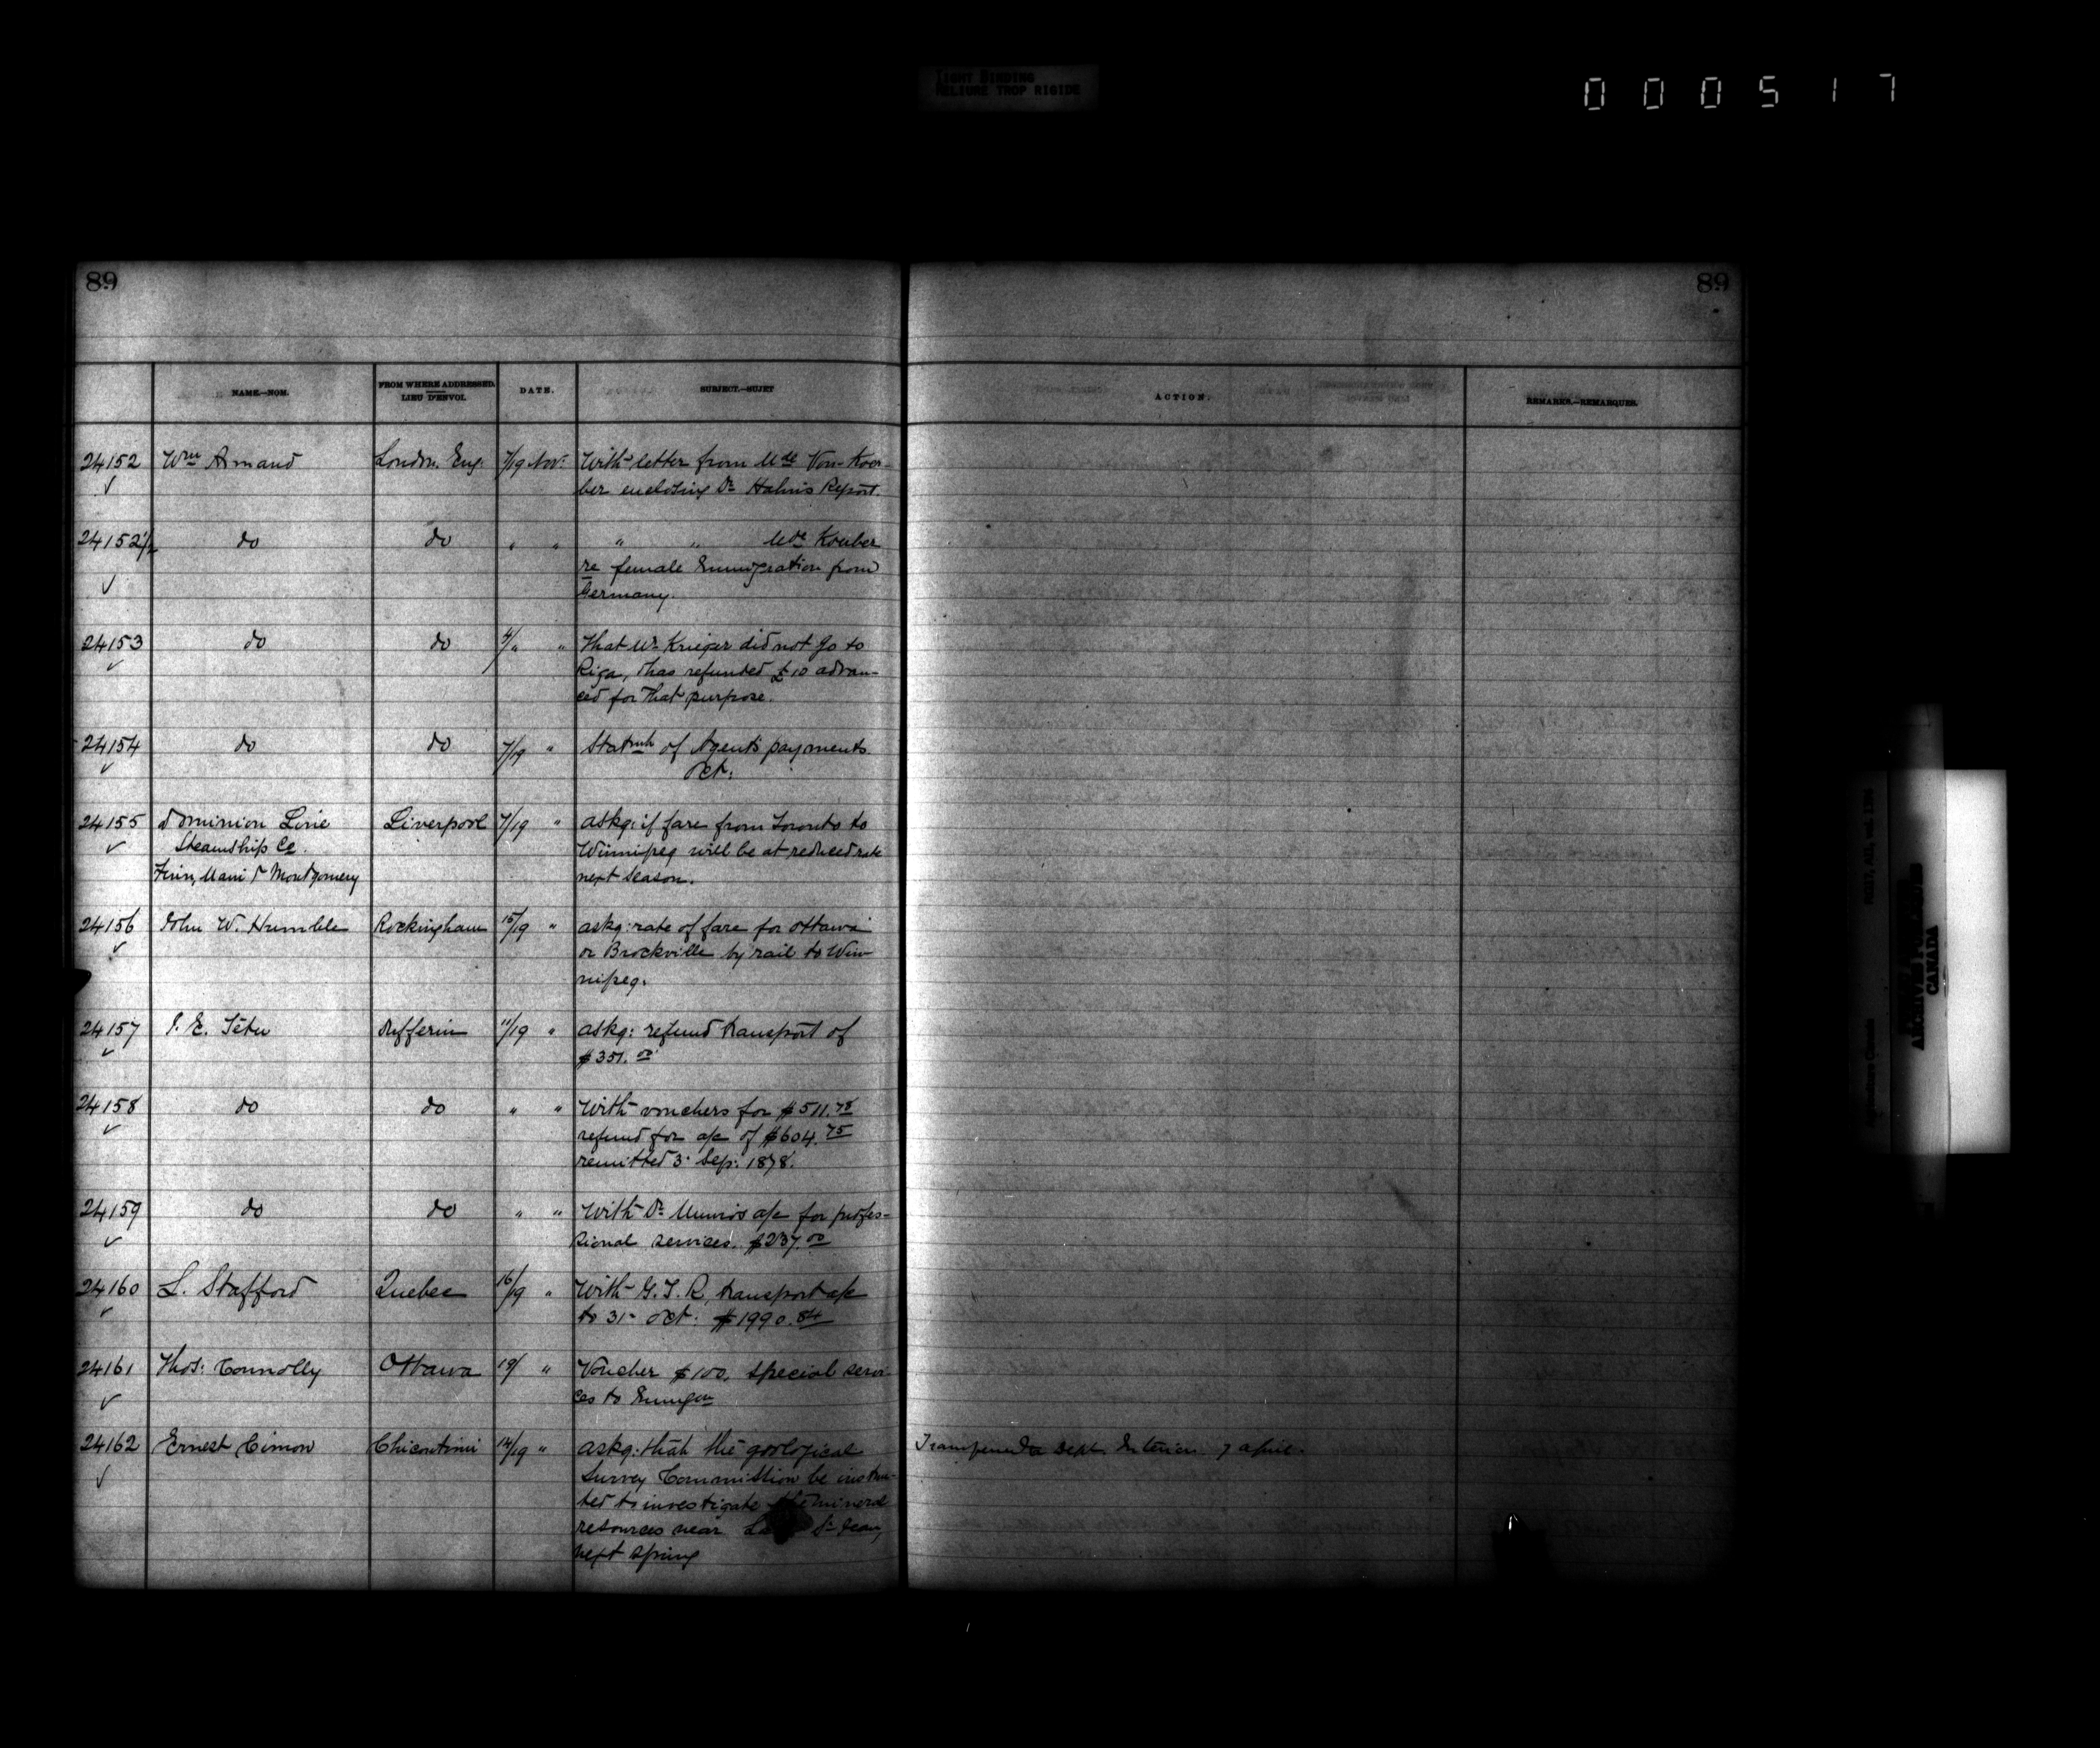 TIGHT BINDING
RELIURE TROP RIGIDE
000517
89
89
NAME.—NOM.
FROM WHERE ADDRESSED.
LIEU D'ENVOI.
DATE.
SUBJECT.—SUJET
ACTION.
REMARKS.—REMARQUES.
24152 Wm Armand London. Eng. 7/19 Nov. With letter from Mde Von Koer-
ber enclosing Dr Hahn's Report.
24152½ do do " " " " Mde Koerber
re female Immigration from
Germany.
24153 do do 4/" " That Mr Krieger did not go to
Riga, & has refunded £10 advan-
ced for that purpose.
24154 do do 7/19 " Statmt of Agent's payments
Oct:
24155 Dominion Line Liverpool 7/19 " askg: if fare from Toronto to
Steamship Co. Winnipeg will be at reduced rate
Flinn, Main & Montgomery next season.
24156 John W. Humble Rockingham 15/19 " askg: rate of fare for Ottawa
or Brockville by rail to Win-
nipeg.
24157 J. E. Têtu Dufferin 11/19 " askg: refund transport of
$351.00
24158 do do " " With vouchers for $511.78
refund for a/c of $604.75
remitted 3 Sep. 1878.
24159 do do " " With Dr Munro's a/c for profes-
sional services. $237.00
24160 L. Stafford Quebec 16/19 " With G. T. R. transport a/c
to 31 Oct: $1990.84
24161 Thos: Connolly Ottawa 19/ " Voucher $100. special servi-
ces to Immgn
24162 Ernest Cimon Chicoutimi 14/19 " askg: that the geological Transferred to Dept. Interior 7 april.
Survey Commission be instruc-
ted to investigate the mineral
resources near St Jean,
next spring
RG17, AII, vol. 1376
Agriculture Canada
ARCHIVES
CANADA